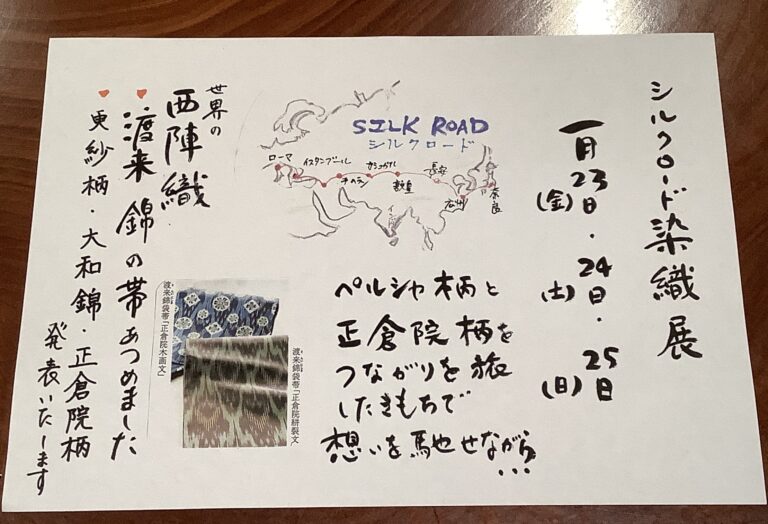 シルクロード染織展
一月23日(金)・24日(土)・25日(日)
SILK ROAD
シルクロード
ローマ
イスタンブール
テヘラン
カシュガル
敦煌
長安
広州
奈良
インド
ペルシャ柄と
正倉院柄を
つながりを旅
したきもちで
想いを馳せながら…
世界の
西陣織
♥渡来錦の帯あつめました
♥更紗柄・大和錦・正倉院柄
発表いたします
渡来錦袋帯「正倉院木画文」
渡来錦袋帯「正倉院絣裂文」